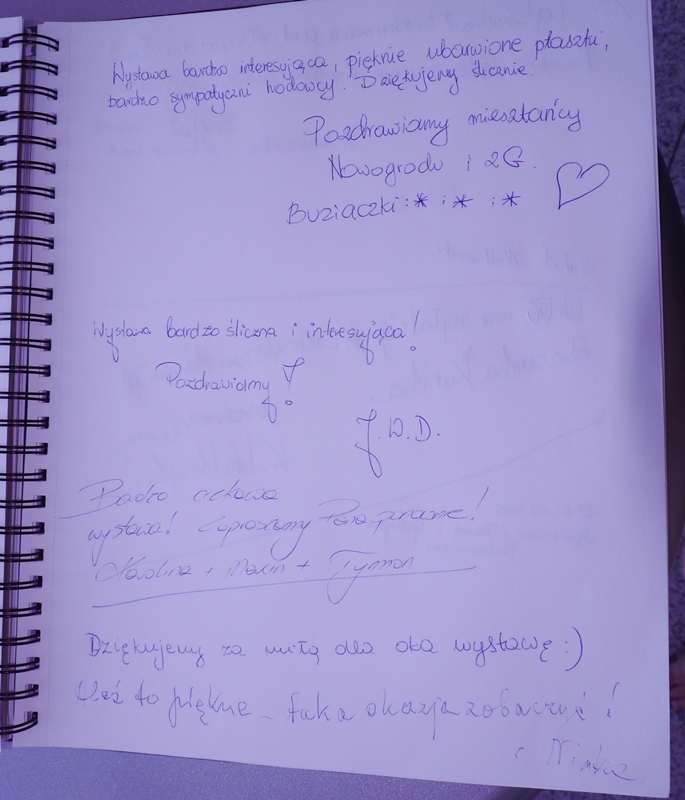 Wystawa bardzo interesująca, pięknie ubarwione ptaszki,
bardzo sympatyczni hodowcy. Dziękujemy ślicznie.
Pozdrawiamy mieszkańcy
Nowogrodu i ZG.
Buziaczki :* ; * :*
Wystawa bardzo śliczna i interesująca!
Pozdrawiamy!
J.W.D.
Bardzo ciekawa
wystawa! Zapraszamy ponownie!
Karolina + Marcin + Tymon
Dziękujemy za miłą dla oka wystawę :)
to piękne - taka okazja zobaczyć!